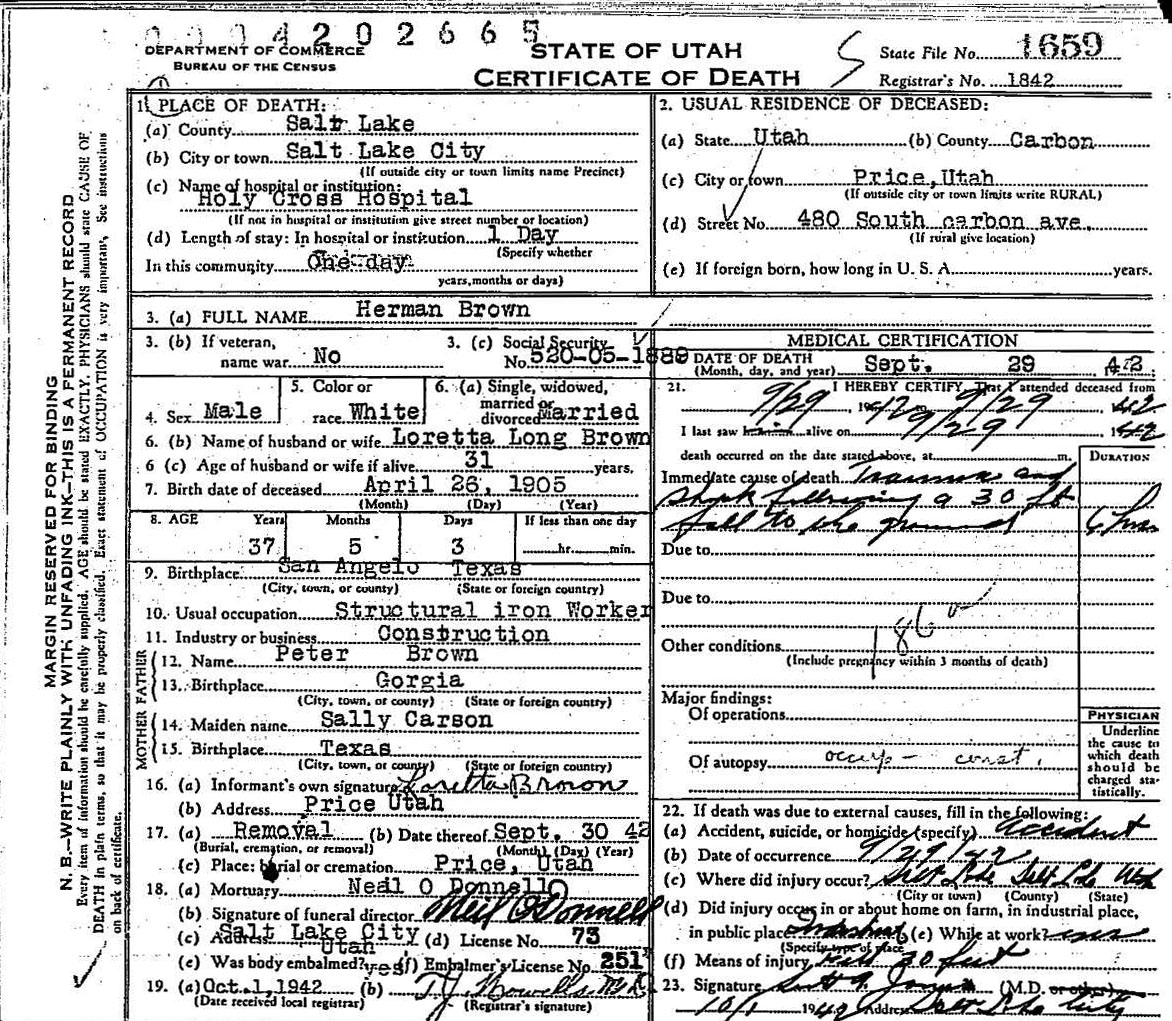 0004202665
DEPARTMENT OF COMMERCE
BUREAU OF THE CENSUS
STATE OF UTAH
CERTIFICATE OF DEATH
State File No. 1659
Registrar's No. 1842
MARGIN RESERVED FOR BINDING
N. B.—WRITE PLAINLY WITH UNFADING INK—THIS IS A PERMANENT RECORD
Every item of information should be carefully supplied. AGE should be stated EXACTLY. PHYSICIANS should state CAUSE OF
DEATH in plain terms, so that it may be properly classified. Exact statement of OCCUPATION is very important. See instructions
on back of certificate.
1. PLACE OF DEATH:
(a) County Salt Lake
(b) City or town Salt Lake City
(If outside city or town limits name Precinct)
(c) Name of hospital or institution:
Holy Cross Hospital
(If not in hospital or institution give street number or location)
(d) Length of stay: In hospital or institution 1 Day
(Specify whether
In this community One day
years, months or days)
2. USUAL RESIDENCE OF DECEASED:
(a) State Utah (b) County Carbon
(c) City or town Price, Utah
(If outside city or town limits write RURAL)
(d) Street No. 480 South carbon ave.
(If rural give location)
(e) If foreign born, how long in U. S. A. years.
3. (a) FULL NAME Herman Brown
3. (b) If veteran, name war No
3. (c) Social Security No. 520-05-1889
4. Sex Male
5. Color or race White
6. (a) Single, widowed, married or divorced Married
6. (b) Name of husband or wife Loretta Long Brown
6 (c) Age of husband or wife if alive 31 years.
7. Birth date of deceased April 26, 1905
(Month) (Day) (Year)
8. AGE Years Months Days If less than one day
37 5 3 hr. min.
9. Birthplace San Angelo Texas
(City, town, or county) (State or foreign country)
10. Usual occupation Structural iron Worker
11. Industry or business Construction
FATHER
12. Name Peter Brown
13. Birthplace Gorgia
(City, town, or county) (State or foreign country)
MOTHER
14. Maiden name Sally Carson
15. Birthplace Texas
(City, town, or county) (State or foreign country)
16. (a) Informant's own signature Loretta Brown
(b) Address Price Utah
17. (a) Removal (b) Date thereof Sept. 30 42
(Burial, cremation, or removal) (Month) (Day) (Year)
(c) Place: burial or cremation Price, Utah
18. (a) Mortuary Neal O Donnell
(b) Signature of funeral director Neil O'Donnell
(c) Address Salt Lake City Utah (d) License No. 73
(e) Was body embalmed? yes (f) Embalmer's License No. 251
19. (a) Oct. 1, 1942 (b) T.J. Howells
(Date received local registrar) (Registrar's signature)
MEDICAL CERTIFICATION
DATE OF DEATH Sept. 29 42
(Month, day, and year)
21. I HEREBY CERTIFY, That I attended deceased from
9/29 1942 9/29 42
I last saw him alive on 9/29 1942
death occurred on the date stated above, at m.
DURATION
Immediate cause of death Trauma and
shock following a 30 ft
fall to the ground 6 hrs
Due to
Due to
186
Other conditions
(Include pregnancy within 3 months of death)
Major findings:
Of operations
Of autopsy occup - const.
PHYSICIAN
Underline
the cause to
which death
should be
charged sta-
tistically.
22. If death was due to external causes, fill in the following:
(a) Accident, suicide, or homicide (specify) Accident
(b) Date of occurrence 9/29/42
(c) Where did injury occur? Salt Lake Salt Lake Utah
(City or town) (County) (State)
(d) Did injury occur in or about home on farm, in industrial place,
in public place Industrial (e) While at work? yes
(Specify type of place
(f) Means of injury Fell 30 feet
23. Signature (M.D. or other)
10/1 1942 Address Salt Lake City